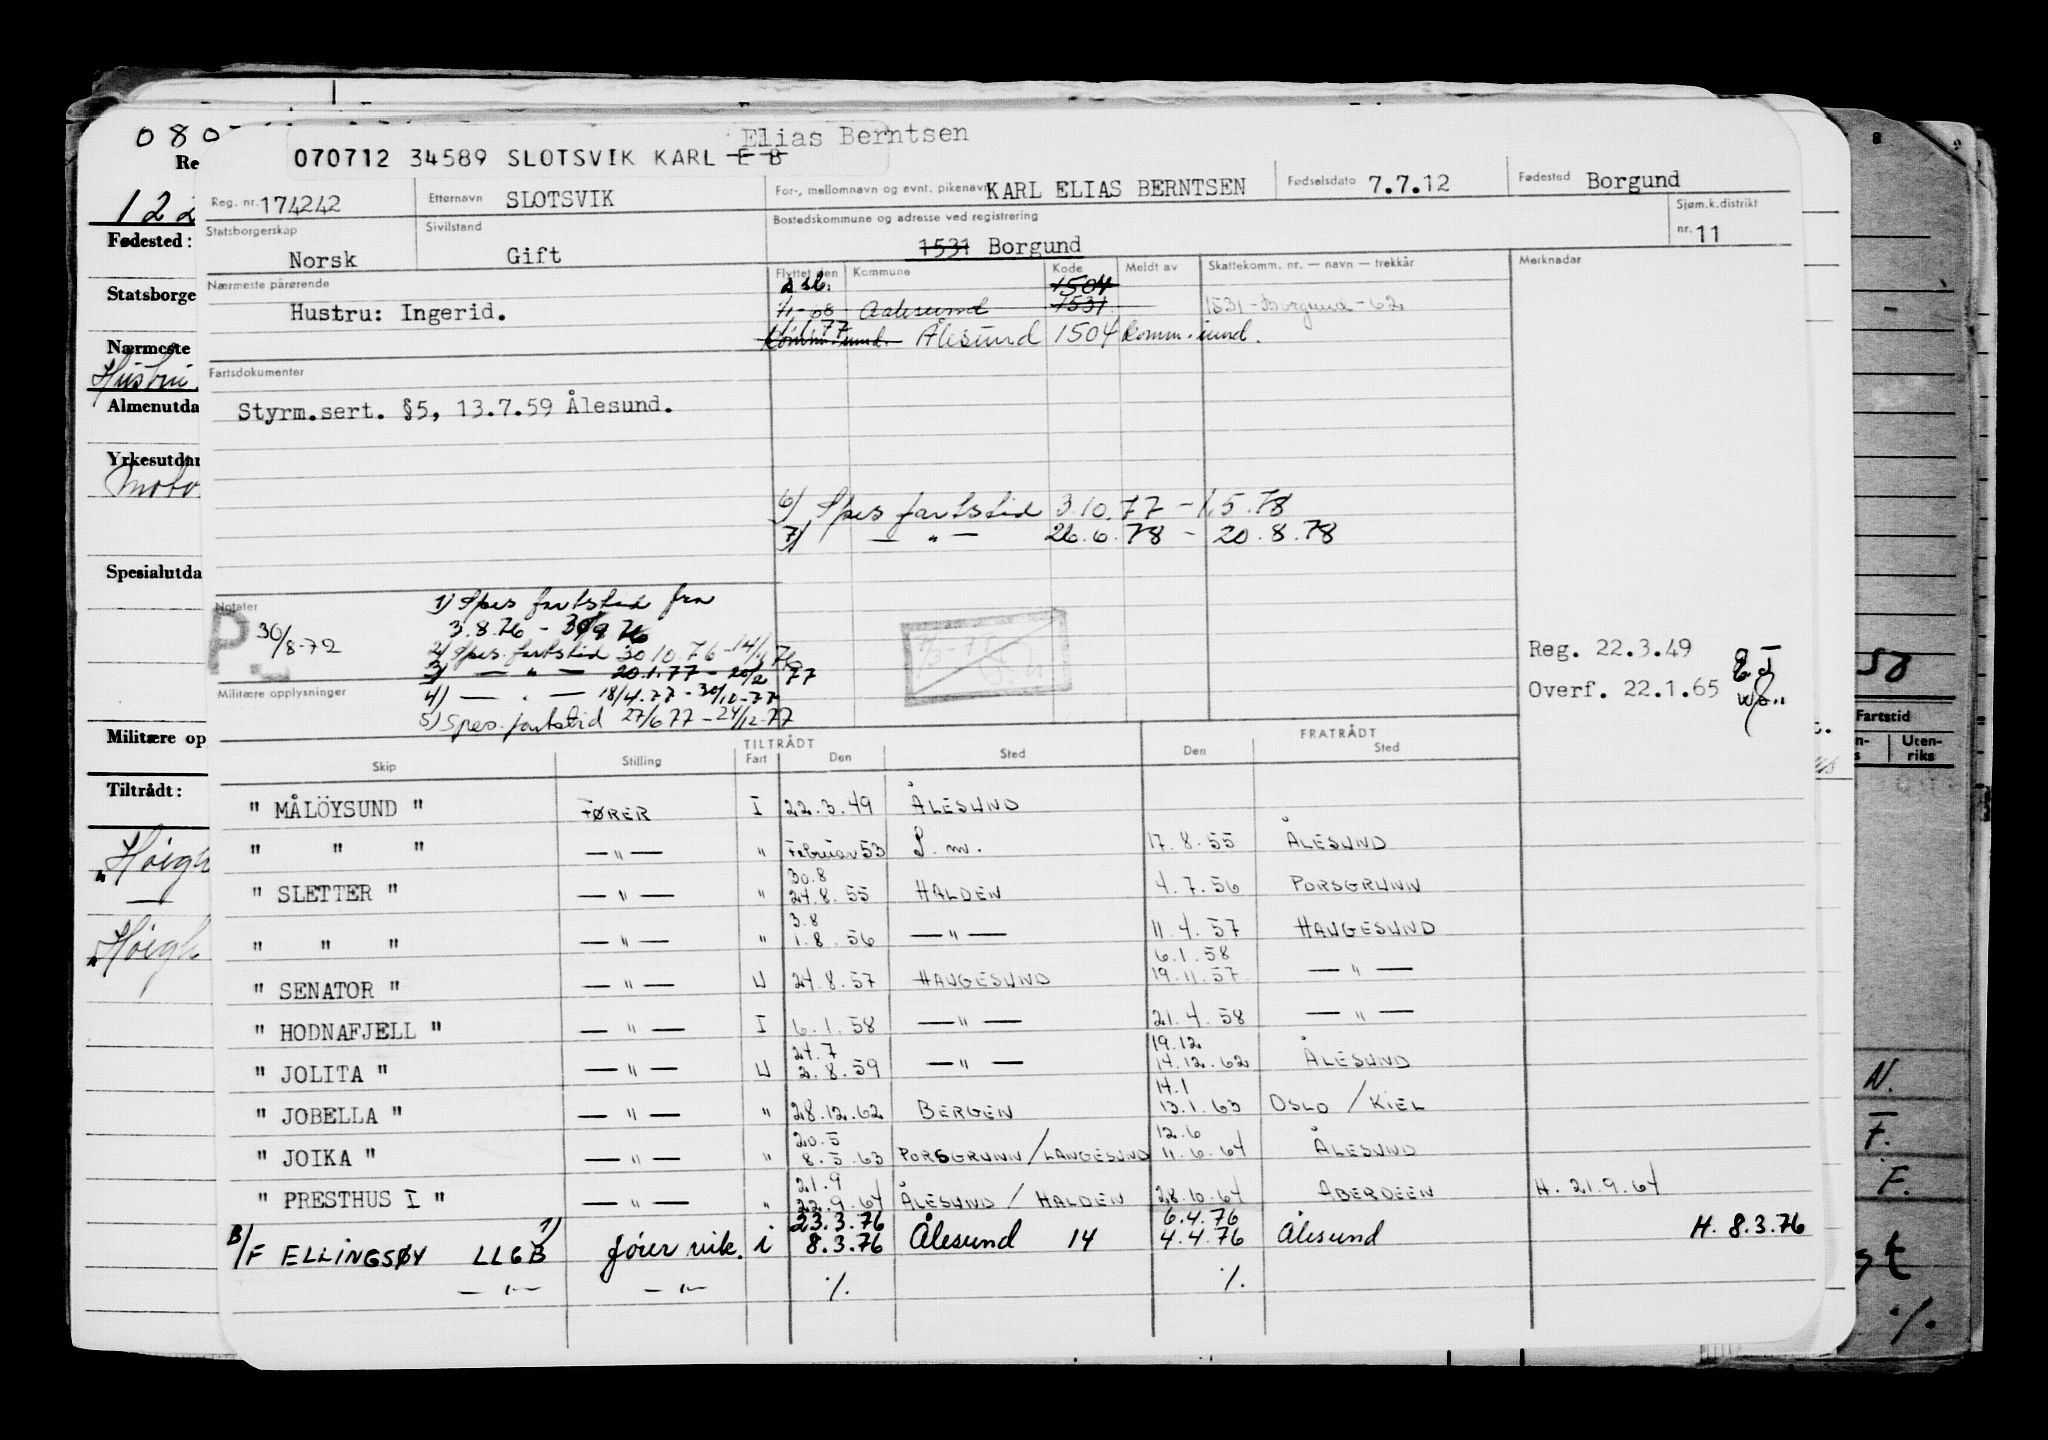 080
Elias Berntsen
070712 34589 SLOTSVIK KARL E B
Re
122
Reg. nr. 174242 Etternavn SLOTSVIK For-, mellomnavn og evnt. pikenavn KARL ELIAS BERNTSEN Fødselsdato 7.7.12 Fødested Borgund
Fødested:
Statsborgerskap Norsk Sivilstand Gift Bostedskommune og adresse ved registrering 1531 Borgund Sjøm.k.distrikt nr. 11
Statsborge
Nærmeste pårørende Flyttet den Kommune Kode Meldt av Skattekomm. nr. — navn — trekkår Merknader
1504
Hustru: Ingerid. 1/1-68 Aalesund 1531 1531-Borgund-62
Komm. und. Ålesund 1504 Komm. und.
Nærmeste
Hustru
Fartsdokumenter
Almenutda
Styrm.sert. §5, 13.7.59 Ålesund.
Yrkesutdan
Moto
6) Spes fartstid 3.10.77 - 1.5.78
7) — " — 26.6.78 - 20.8.78
Spesialutda
Notater
P. 30/8-72
1) Spes fartstid fra
3.8.76 - 30/9 76
2) Spes. fartstid 30.10.76 - 14/
3) — " — 20.1.77 - 20/2 77
4) — " — 18/4.77 - 30/10-77
5) Spes. fartstid 27/6 77 - 24/12-77
Reg. 22.3.49
Overf. 22.1.65
50
Militære opplysninger
Militære op
Fartstid
Uten-
riks
TILTRÅDT FRATRÅDT
Skip Stilling Fart Den Sted Den Sted
Tiltrådt:
" MÅLÖYSUND " FØRER I 22.3.49 ÅLESUND
" " " — " — " Februar 53 S. m. 17.8.55 ÅLESUND
30.8
" SLETTER " — " — " 24.8.55 HALDEN 4.7.56 PORSGRUNN
3.8
" " " — " — " 1.8.56 — " — 11.4.57 HAUGESUND
6.1.58
" SENATOR " — " — U 24.8.57 HAUGESUND 19.11.57 — " —
" HODNAFJELL " — " — I 6.1.58 — " — 21.4.58 — " —
24.7 19.12
" JOLITA " — " — U 2.8.59 — " — 14.12.62 ÅLESUND
14.1
" JOBELLA " — " — " 28.12.62 BERGEN 13.1.63 OSLO / KIEL
20.5 12.6
" JOIKA " — " — " 8.5.63 PORSGRUNN / LANGESUND 11.6.64 ÅLESUND
21.9
" PRESTHUS I " — " — " 22.9.64 ÅLESUND / HALDEN 28.10.64 ABERDEEN H. 21.9.64
23.3.76 6.4.76
B/F ELLINGSØY LLGB 1) fører vik. i 8.3.76 Ålesund 14 4.4.76 Ålesund H. 8.3.76
— " — — " — ./. ./.
"Høigh
"Høigh
N.
F.
F.
./.